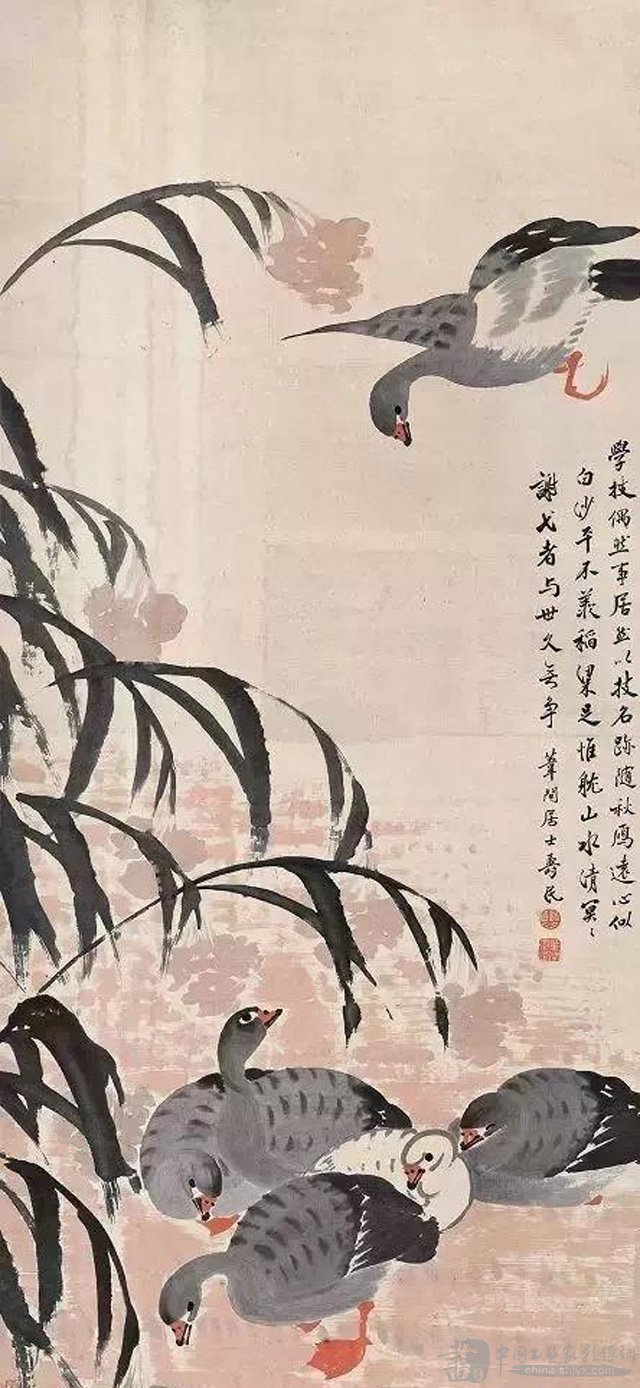 學技偶然事居然以技名跡隨秋雁遠心似
白沙平不羨稻粱足惟躭山水清冥〻
謝弋者与世久無争
葦間居士壽民
中国工艺家影像网
china-shjyx.com